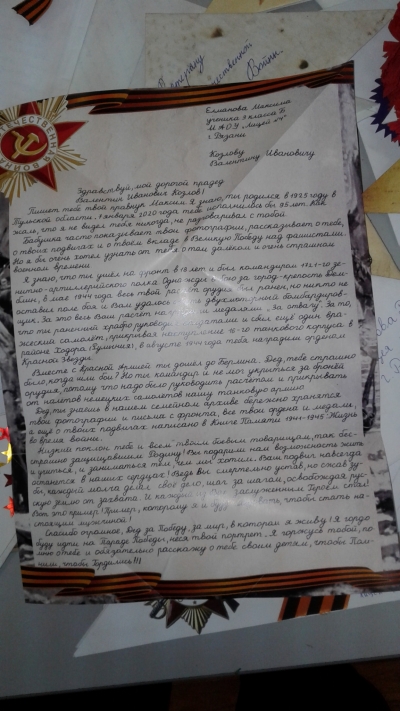 Ветерану
Отечественной
Войны.
ОТЕЧЕСТВЕННАЯ ВОЙНА
Елманова Максима
ученика 3 класса Б
МАОУ "Лицей №4"
г. Рязани
Козлову
Валентину Ивановичу
Здравствуй, мой дорогой прадед
Валентин Иванович Козлов!
Пишет тебе твой правнук Максим. Я знаю, ты родился в 1925 году в
Тульской области. 1 января 2020 года тебе исполнилось бы 95 лет. Как
жаль, что я не видел тебя никогда, не разговаривал с тобой.
Бабушка часто показывает твои фотографии, рассказывает о тебе,
о твоих подвигах и о твоем вкладе в Великую Победу над фашистами.
Но я бы очень хотел узнать от тебя о том далеком и очень страшном
военном времени.
Я знаю, что ты ушел на фронт в 18 лет и был командиром 1721-го зе-
нитно-артиллерийского полка. Однажды в бою за город-крепость
в мае 1944 года весь твой расчет орудия был ранен, но никто не
оставил поле боя и Вам удалось двухмоторный бомбардиров-
щик. За это весь Ваш расчет медалями "За отвагу". За то,
что ты раненный храбро руководил солдатами и сбил ещё один вра-
жеский самолёт, прикрывая наступление 16-го танкового корпуса в
районе (Румыния), в августе 1944 года тебя наградили орденом
Красной Звезды.
Вместе с Красной Армией ты дошел до Берлина. Дед, тебе страшно
было, когда шли бои? Но ты командир и не мог укрыться за бронёй
орудия, потому что надо было руководить расчетом и прикрывать
от налетов немецких самолетов нашу танковую армию.
Дед, ты знаешь, в нашем семейном архиве бережно хранятся
твои фотографии и письма с фронта, все твои ордена и медали,
а ещё о твоих подвигах написано в Книге Памяти 1941-1945 "Жизнь
во время войны".
Низкий поклон тебе и всем твоим боевым товарищам, так бес-
страшно защищавшим Родину! Вы подарили нам возможность жить
и учиться, и заниматься тем, чем мы хотим. Ваш подвиг навсегда
останется в наших сердцах! Ведь вы смертельно устав, но сжав зу-
бы, каждый молча делал свое дело, шаг за шагом, освобождая рус-
скую землю от захвата. И каждый из Вас стал заслуженным Героем. Слава!
Вот это пример! Пример, которому я чтобы стать на-
стоящим мужчиной!
Спасибо огромное, Дед за Победу, за мир, в котором я живу! Я гордо
буду идти на Параде Победы, неся твой портрет, я горжусь тобой, по-
мню о тебе и обязательно расскажу о тебе своим детям, чтобы пом-
нили, чтобы гордились!!!